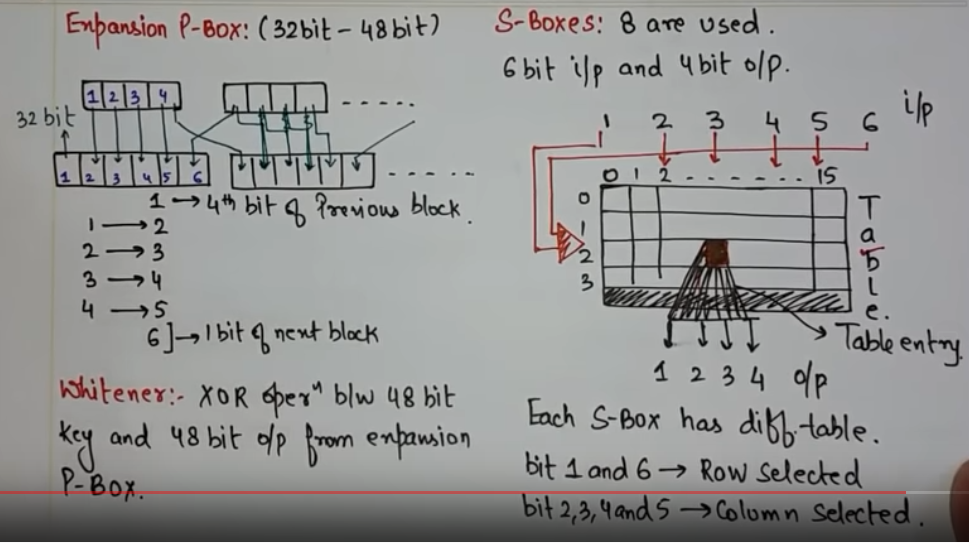 Expansion P-Box: (32bit – 48bit)
1 2 3 4
32 bit
1 2 3 4 5 6
1 → 4th bit of Previous block.
1 → 2
2 → 3
3 → 4
4 → 5
6] → 1 bit of next block
Whitener:- XOR operⁿ b/w 48 bit
key and 48 bit o/p from expansion
P-Box.
S-Boxes: 8 are used.
6 bit i/p and 4 bit o/p.
1 2 3 4 5 6 i/p
0 1 2 - - - - - - 15
0
1
2
3
Table.
Table entry.
1 2 3 4 o/p
Each S-Box has diff. table.
bit 1 and 6 → Row selected
bit 2,3,4 and 5 → Column selected.